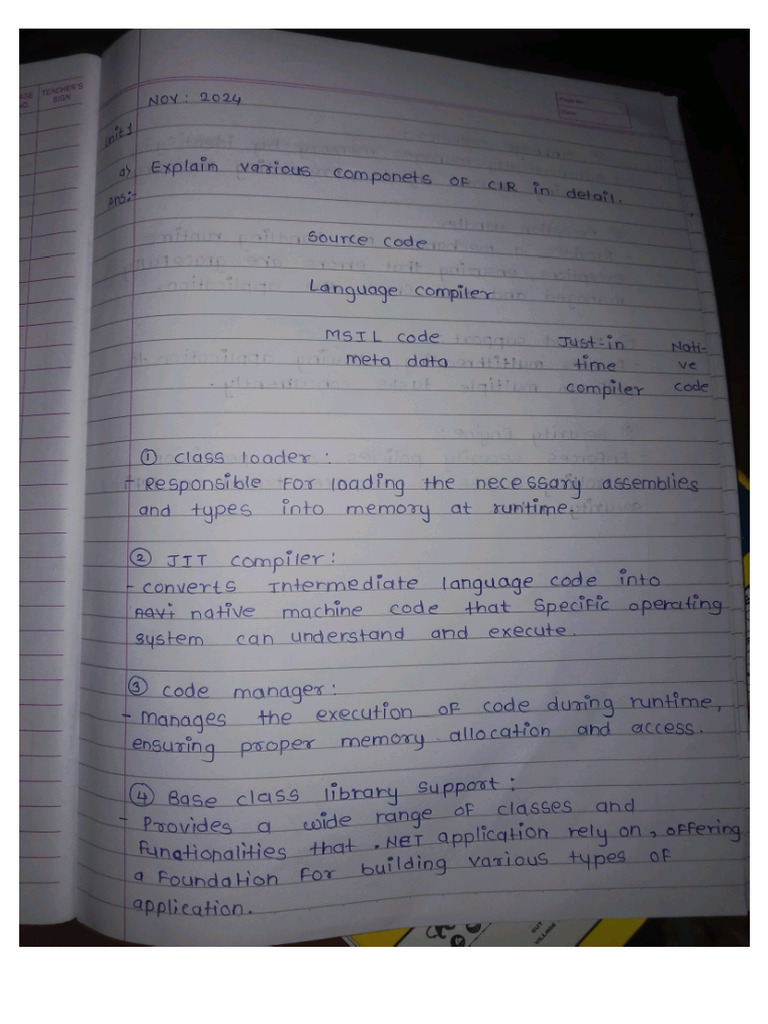 TEACHER'S
SIGN
NOV: 2024
Unit 1
a) Explain various componets of CLR in detail.
Ans:-
Source code
Language compiler
MSIL code Just-in Nati-
meta data time ve
compiler code
① class loader :
- Responsible for loading the necessary assemblies
and types into memory at runtime.
② JIT compiler :
- converts Intermediate language code into
native machine code that specific operating
system can understand and execute.
③ code manager :
- Manages the execution of code during runtime,
ensuring proper memory allocation and access.
④ Base class library support :
- Provides a wide range of classes and
funationalities that .NET application rely on, offering
a foundation for building various types of
application.
VILLAGE